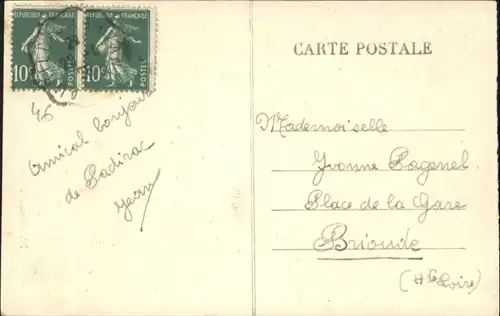 REPUBLIQUE FRANÇAISE REPUBLIQUE FRANÇAISE
10c POSTES 10c POSTES
46
Amical bonjour
de Padirac
Jean
CARTE POSTALE
Mademoiselle
Yvonne Pagenel
Place de la Gare
Brioude
(Hte Loire)